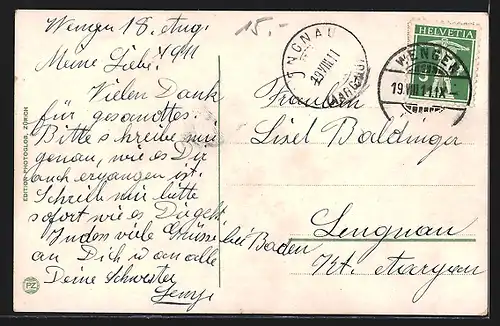 Wengen 18. Aug.
1911
Meine Liebe!
Vielen Dank
für gesandtes.
Bitte schreibe mir
genau, wie es Dir
auch ergangen ist.
Schreib mir bitte
sofort wie es Dir geht.
Indes viele Grüsse
an Dich u. an alle
Deine Schwester
15.-
LENGNAU
19.VIII.11
(AARGAU)
HELVETIA
WENGEN
19.VIII.11.IX
Fräulein
Lisel Baldinger
Lengnau
bei Baden
Kt. Aargau
EDITION PHOTOGLOB, ZÜRICH
PZ